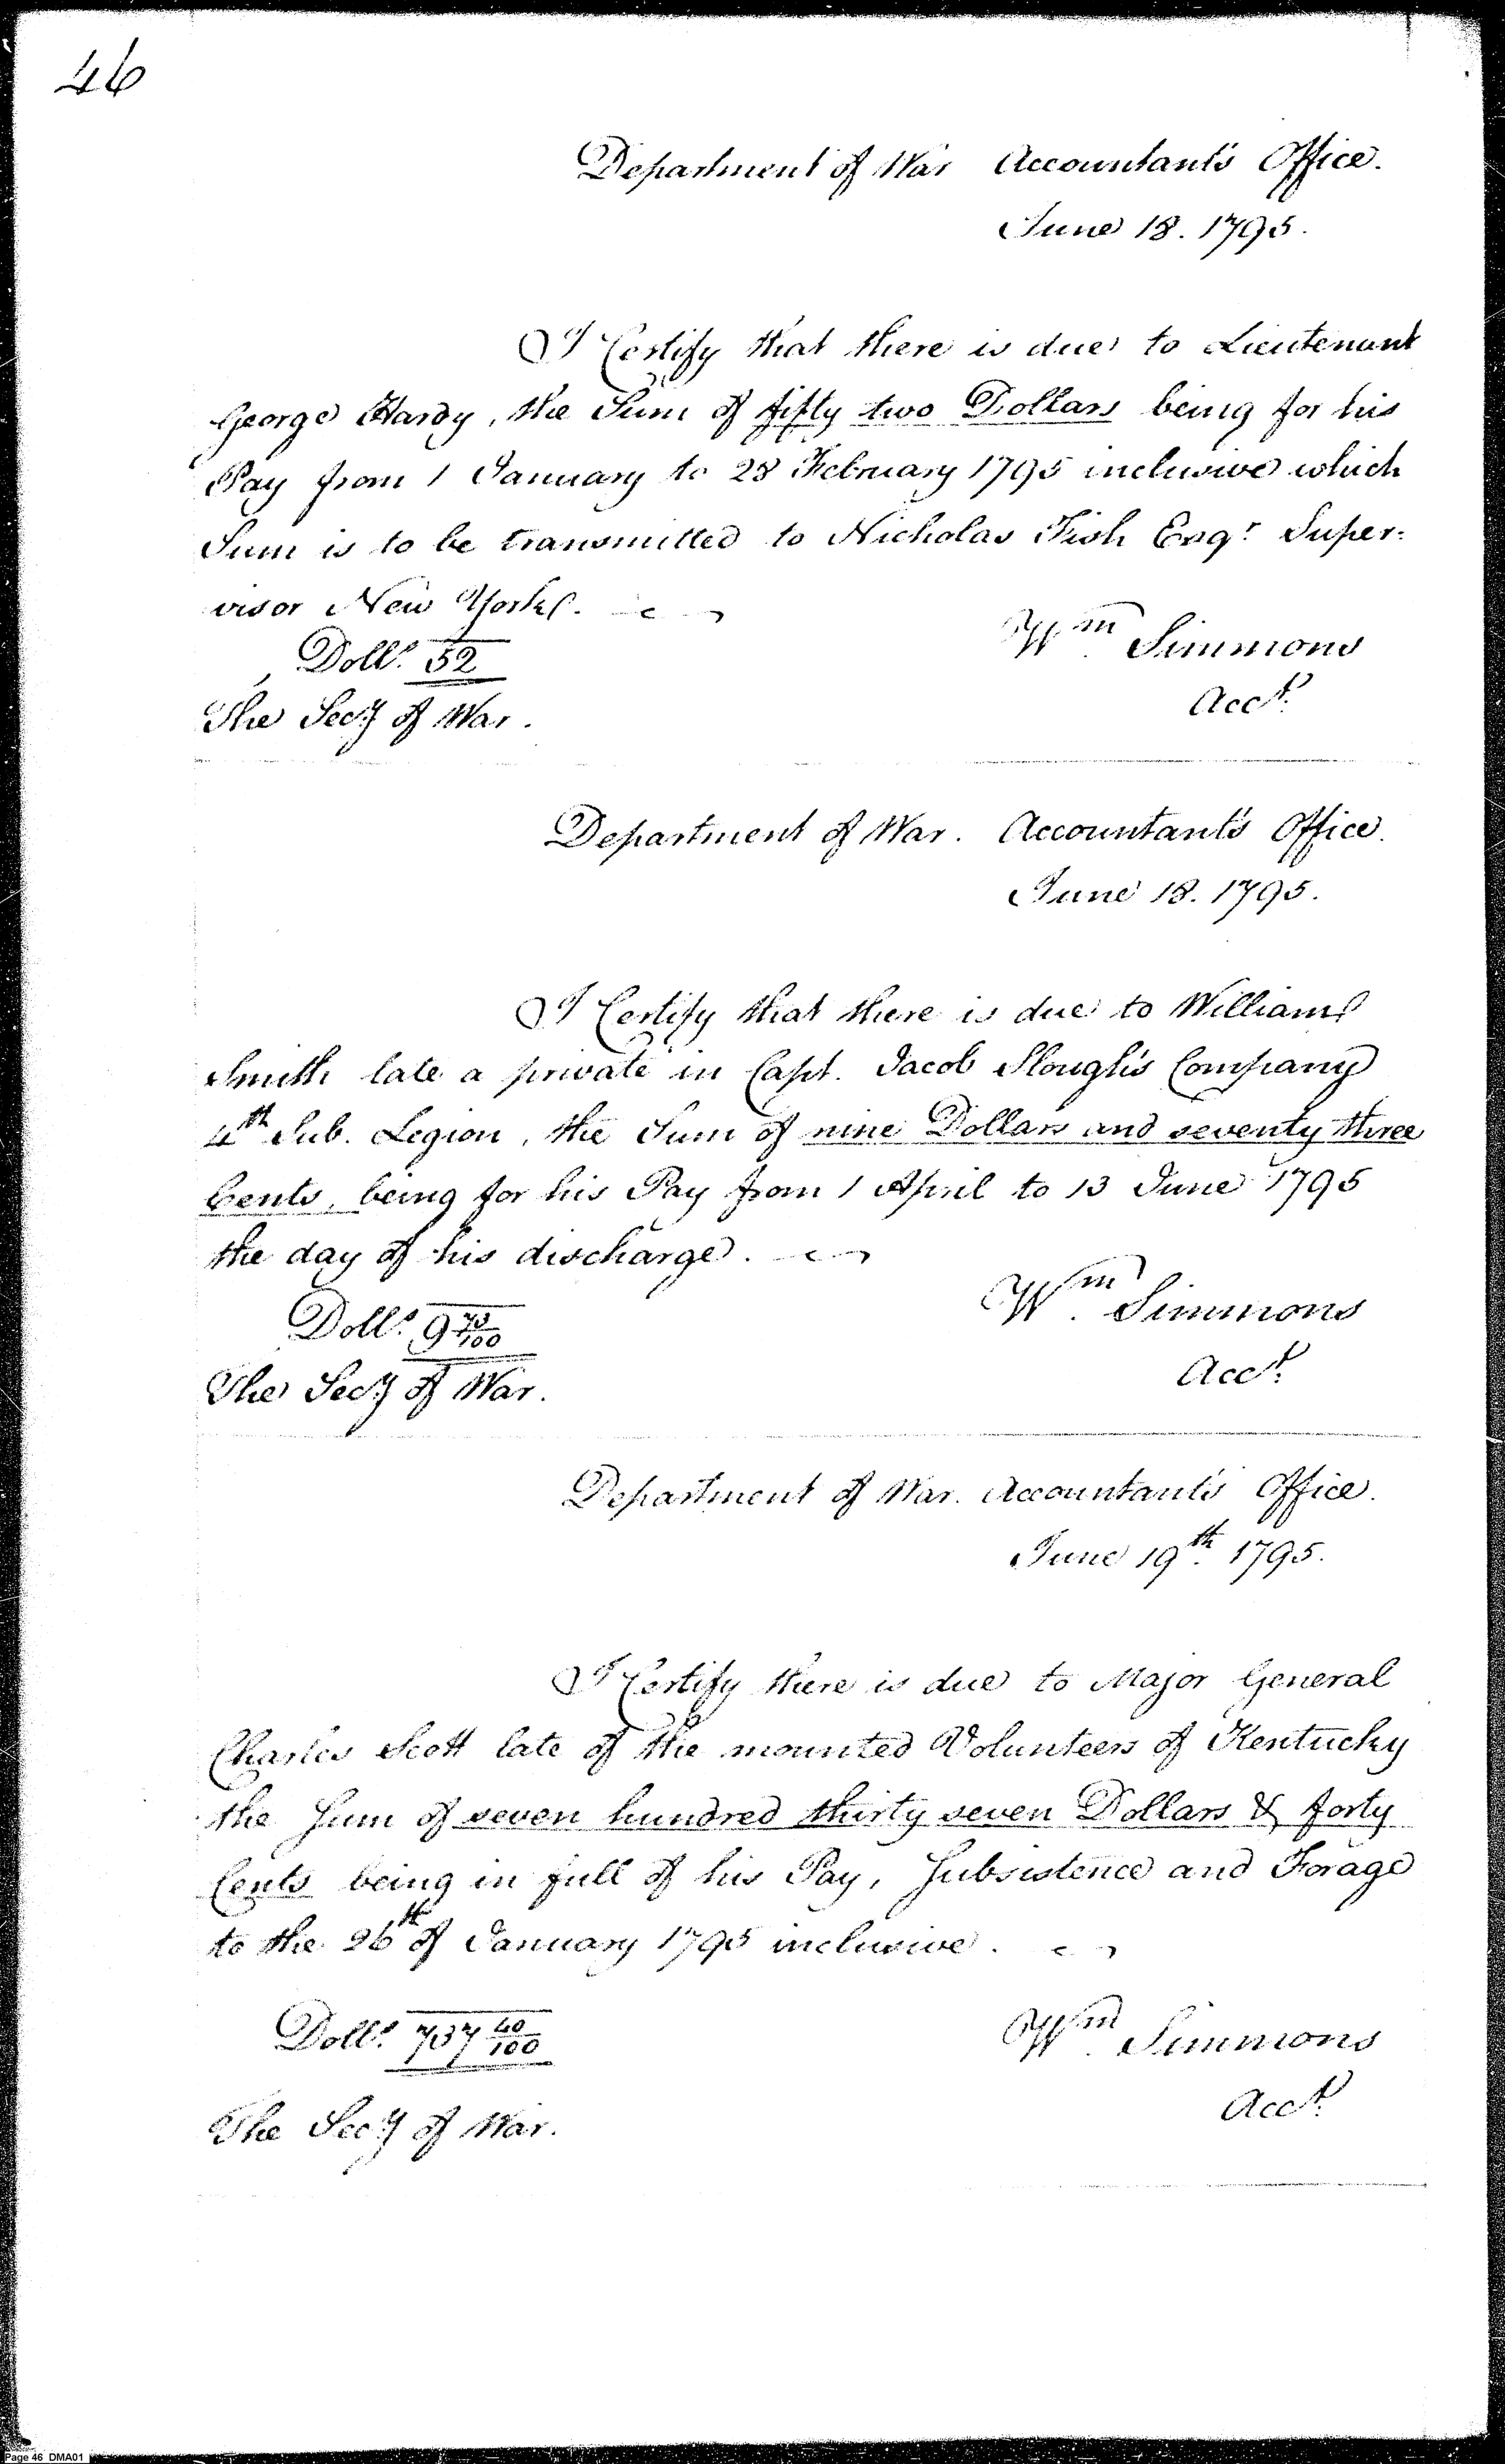 46
Department of War Accountant's Office.
June 18. 1795.
I Certify that there is due to Lieutenant
George Hardy, the Sum of fifty two Dollars being for his
Pay from 1 January to 28 February 1795 inclusive which
Sum is to be transmitted to Nicholas Fish Esqr. Super-
visor New York.
Dolls. 52
Wm. Simmons
Acct.
The Secy of War.
Department of War. Accountant's Office.
June 18. 1795.
I Certify that there is due to William
Smith late a private in Capt. Jacob Slough's Company
4th Sub. Legion, the Sum of nine Dollars and seventy three
Cents, being for his Pay from 1 April to 13 June 1795
the day of his discharge.
Dolls. 9 73/100
Wm. Simmons
Acct.
The Secy of War.
Department of War. Accountant's Office.
June 19th. 1795.
I Certify there is due to Major General
Charles Scott late of the mounted Volunteers of Kentucky
the Sum of seven hundred thirty seven Dollars & forty
Cents being in full of his Pay, Subsistence and Forage
to the 26th of January 1795 inclusive.
Dolls. 737 40/100
Wm. Simmons
Acct.
The Secy of War.
Page 46 DMA01